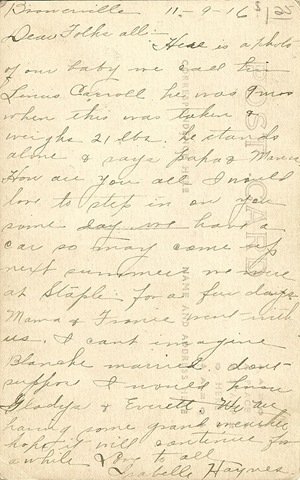 Brownville 11-9-16 $1/25
Dear Folks all:- Here is a photo
of our baby we call him
Linus Carroll he was 9 mos
when this was taken &
weighs 21 lbs. he stands
alone & says papa & Mama
How are you all I would
love to step in on you
some day we have a
car so may come up
next summer we were
at Staple for a few days
Mama & France went with
us. I cant imagine
Blanche married dont
suppose I would know
Gladys & Everett. We are
having some grand weather
hope it will continue for
awhile Love to all
Isabelle Haynes
POST CARD
CORRESPONDENCE HERE
NAME AND ADDRESS